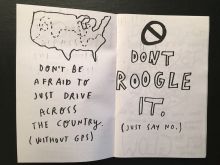 DON'T BE
AFRAID TO
JUST DRIVE
ACROSS
THE COUNTRY.
(WITHOUT GPS)
DONT
ROOGLE
IT.
(JUST SAY NO.)